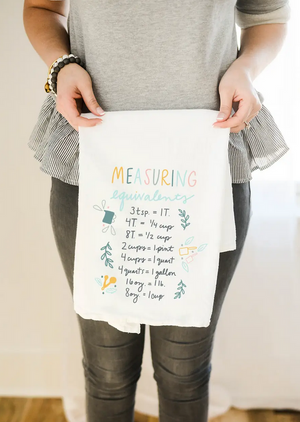 MEASURING
equivalents
3 tsp. = 1 T.
4T. = ¼ cup
8T = ½ cup
2 cups = 1 pint
4 cups = 1 quart
4 quarts = 1 gallon
16 oz = 1 lb.
8oz = 1 cup